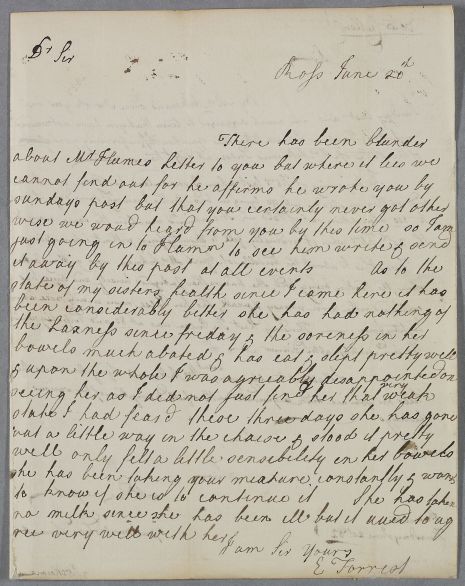 Dr Sir
Ross June 20th
There has been blunder
about Mr Humes Letter to you but where it lies we
cannot find out for he affirms he wrote you by
sundays post but that you certainly never got other
wise we woud heard from you by this time so I am
just going in to to see him write & send
it away by this post at all events As to the
state of my sisters health since I came here it has
been considerably better she has had nothing of
the Laxness since friday & the soreness in her
bowels much abated & has eat & slept pretty well
& upon the whole I was agreeably disappointed on
seeing her as I did not just find her that very weak
state I had feard these three days she has gone
out a little way in the chaise & stood it pretty
well only felt a little sensibility in her bowels
she has been taking your mixture constantly & wants
to know if she is to continue it She has taken
no milk since she has been ill but it used to ag
ree very well with her
I am Sir Yours
E Forrest